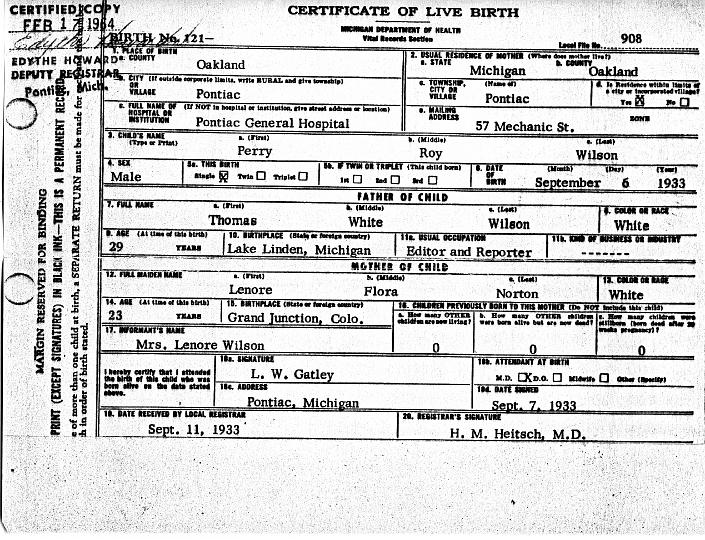 CERTIFIED COPY
FEB 17 1964
EDYTHE HOWARD
DEPUTY REGISTRAR
Pontiac, Mich.
MARGIN RESERVED FOR BINDING
PRINT (EXCEPT SIGNATURES) IN BLACK INK—THIS IS A PERMANENT RECORD
e of more than one child at birth, a SEPARATE RETURN must be made for
h in order of birth stated.
CERTIFICATE OF LIVE BIRTH
MICHIGAN DEPARTMENT OF HEALTH
Vital Records Section
BIRTH No. 121—
Local File No. 908
1. PLACE OF BIRTH
a. COUNTY
Oakland
b. CITY (If outside corporate limits, write RURAL and give township)
VILLAGE
Pontiac
c. FULL NAME OF (If NOT in hospital or institution, give street address or location)
HOSPITAL OR
INSTITUTION
Pontiac General Hospital
2. USUAL RESIDENCE OF MOTHER (Where does mother live?)
a. STATE b. COUNTY
Michigan Oakland
c. TOWNSHIP, (Name of)
CITY OR
VILLAGE
Pontiac
d. Is Residence within limits of
a city or incorporated village?
Yes ☒ No ☐
e. MAILING
ADDRESS
57 Mechanic St.
ZONE
3. CHILD'S NAME a. (First) b. (Middle) c. (Last)
(Type or Print)
Perry Roy Wilson
4. SEX
Male
5a. THIS BIRTH
Single ☒ Twin ☐ Triplet ☐
5b. IF TWIN OR TRIPLET (This child born)
1st ☐ 2nd ☐ 3rd ☐
6. DATE OF BIRTH (Month) (Day) (Year)
September 6 1933
FATHER OF CHILD
7. FULL NAME a. (First) b. (Middle) c. (Last)
Thomas White Wilson
8. COLOR OR RACE
White
9. AGE (At time of this birth)
29 YEARS
10. BIRTHPLACE (State or foreign country)
Lake Linden, Michigan
11a. USUAL OCCUPATION
Editor and Reporter
11b. KIND OF BUSINESS OR INDUSTRY
-------
MOTHER OF CHILD
12. FULL MAIDEN NAME a. (First) b. (Middle) c. (Last)
Lenore Flora Norton
13. COLOR OR RACE
White
14. AGE (At time of this birth)
23 YEARS
15. BIRTHPLACE (State or foreign country)
Grand Junction, Colo.
16. CHILDREN PREVIOUSLY BORN TO THIS MOTHER (Do NOT include this child)
a. How many OTHER
children are now living?
0
b. How many OTHER children
were born alive but are now dead?
0
c. How many children were
stillborn (born dead after 20
weeks pregnancy)?
0
17. INFORMANT'S NAME
Mrs. Lenore Wilson
I hereby certify that I attended
the birth of this child who was
born alive on the date stated
above.
18a. SIGNATURE
L. W. Gatley
18b. ATTENDANT AT BIRTH
M.D. ☒ D.O. ☐ Midwife ☐ Other (Specify)
18c. ADDRESS
Pontiac, Michigan
18d. DATE SIGNED
Sept. 7, 1933
19. DATE RECEIVED BY LOCAL REGISTRAR
Sept. 11, 1933
20. REGISTRAR'S SIGNATURE
H. M. Heitsch, M.D.